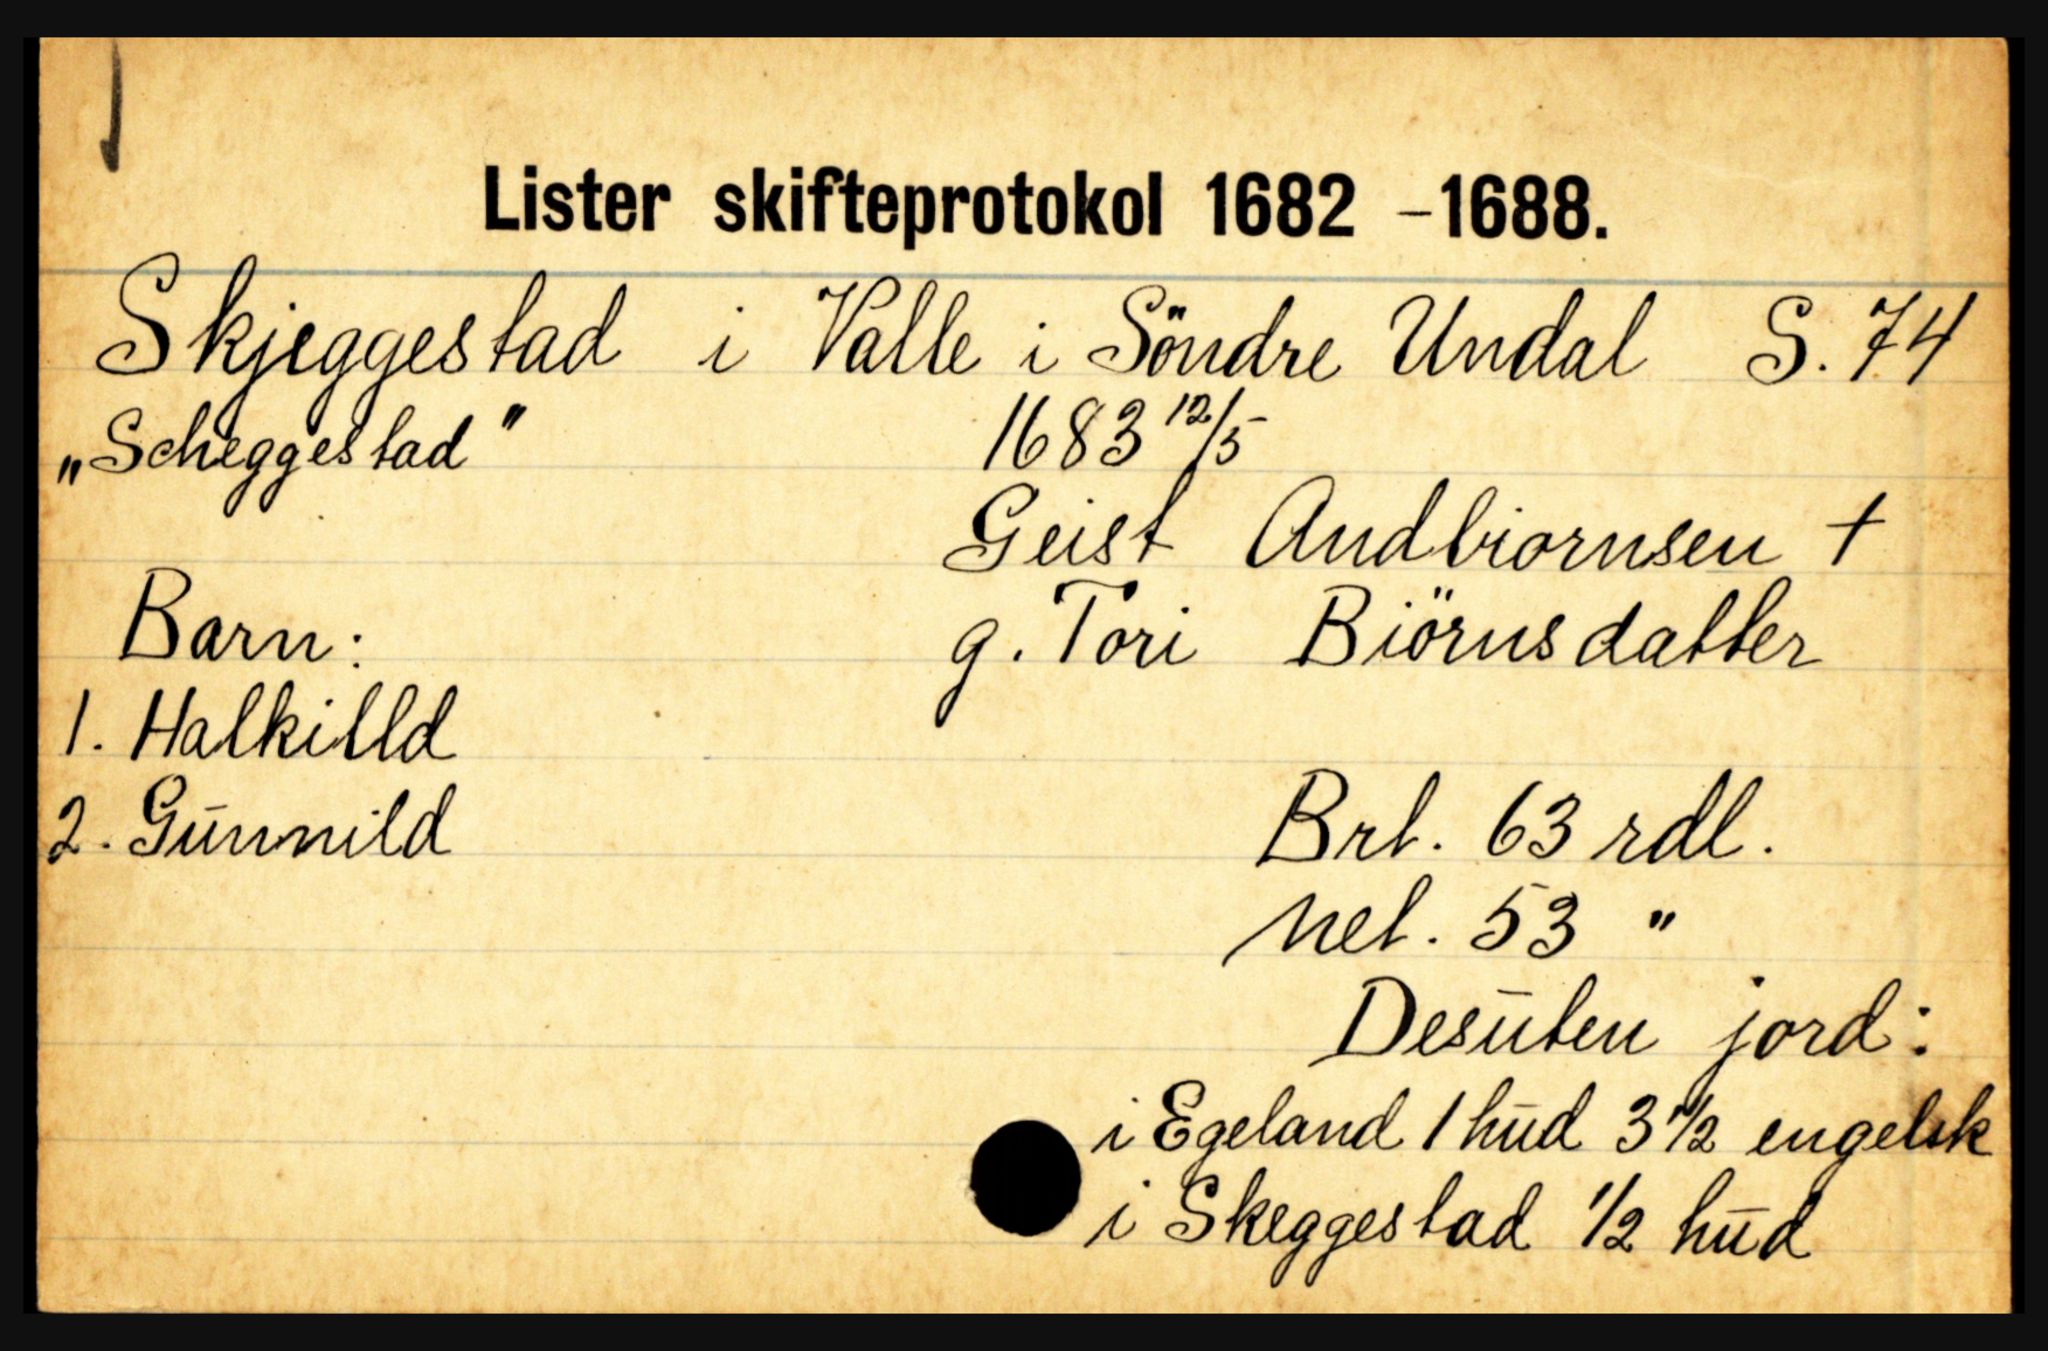 Lister skifteprotokol 1682 – 1688.
Skjeggestad i Valle i Söndre Undal S. 74
„Scheggestad" 1683 12/5
Geist Andbiornsen +
Barn: g. Tori Biörnsdatter
1. Halkilld
2. Gūnnild Brt. 63 rdl.
Net. 53 "
Desūten jord:
i Egeland 1 hūd 3 1/2 engelsk
i Skeggestad 1/2 hūd